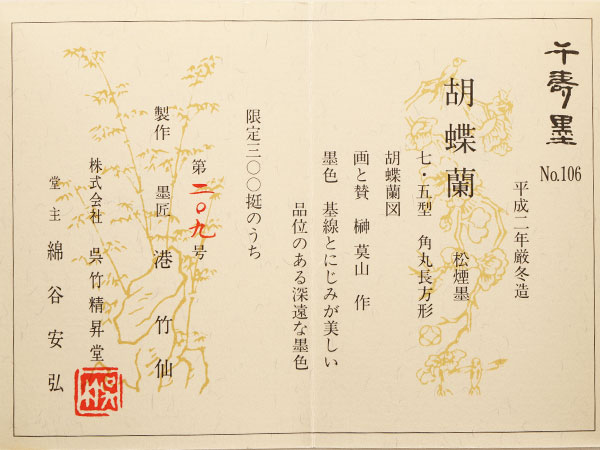 千寿墨
No.106
平成二年厳冬造
胡蝶蘭 松煙墨
七・五型 角丸長方形
胡蝶蘭図
画と賛 榊莫山 作
墨色 基線とにじみが美しい
品位のある深遠な墨色
限定三〇〇挺のうち
第二〇九号
製作 墨匠 港竹仙
株式会社 呉竹精昇堂
堂主 綿谷安弘
呉竹